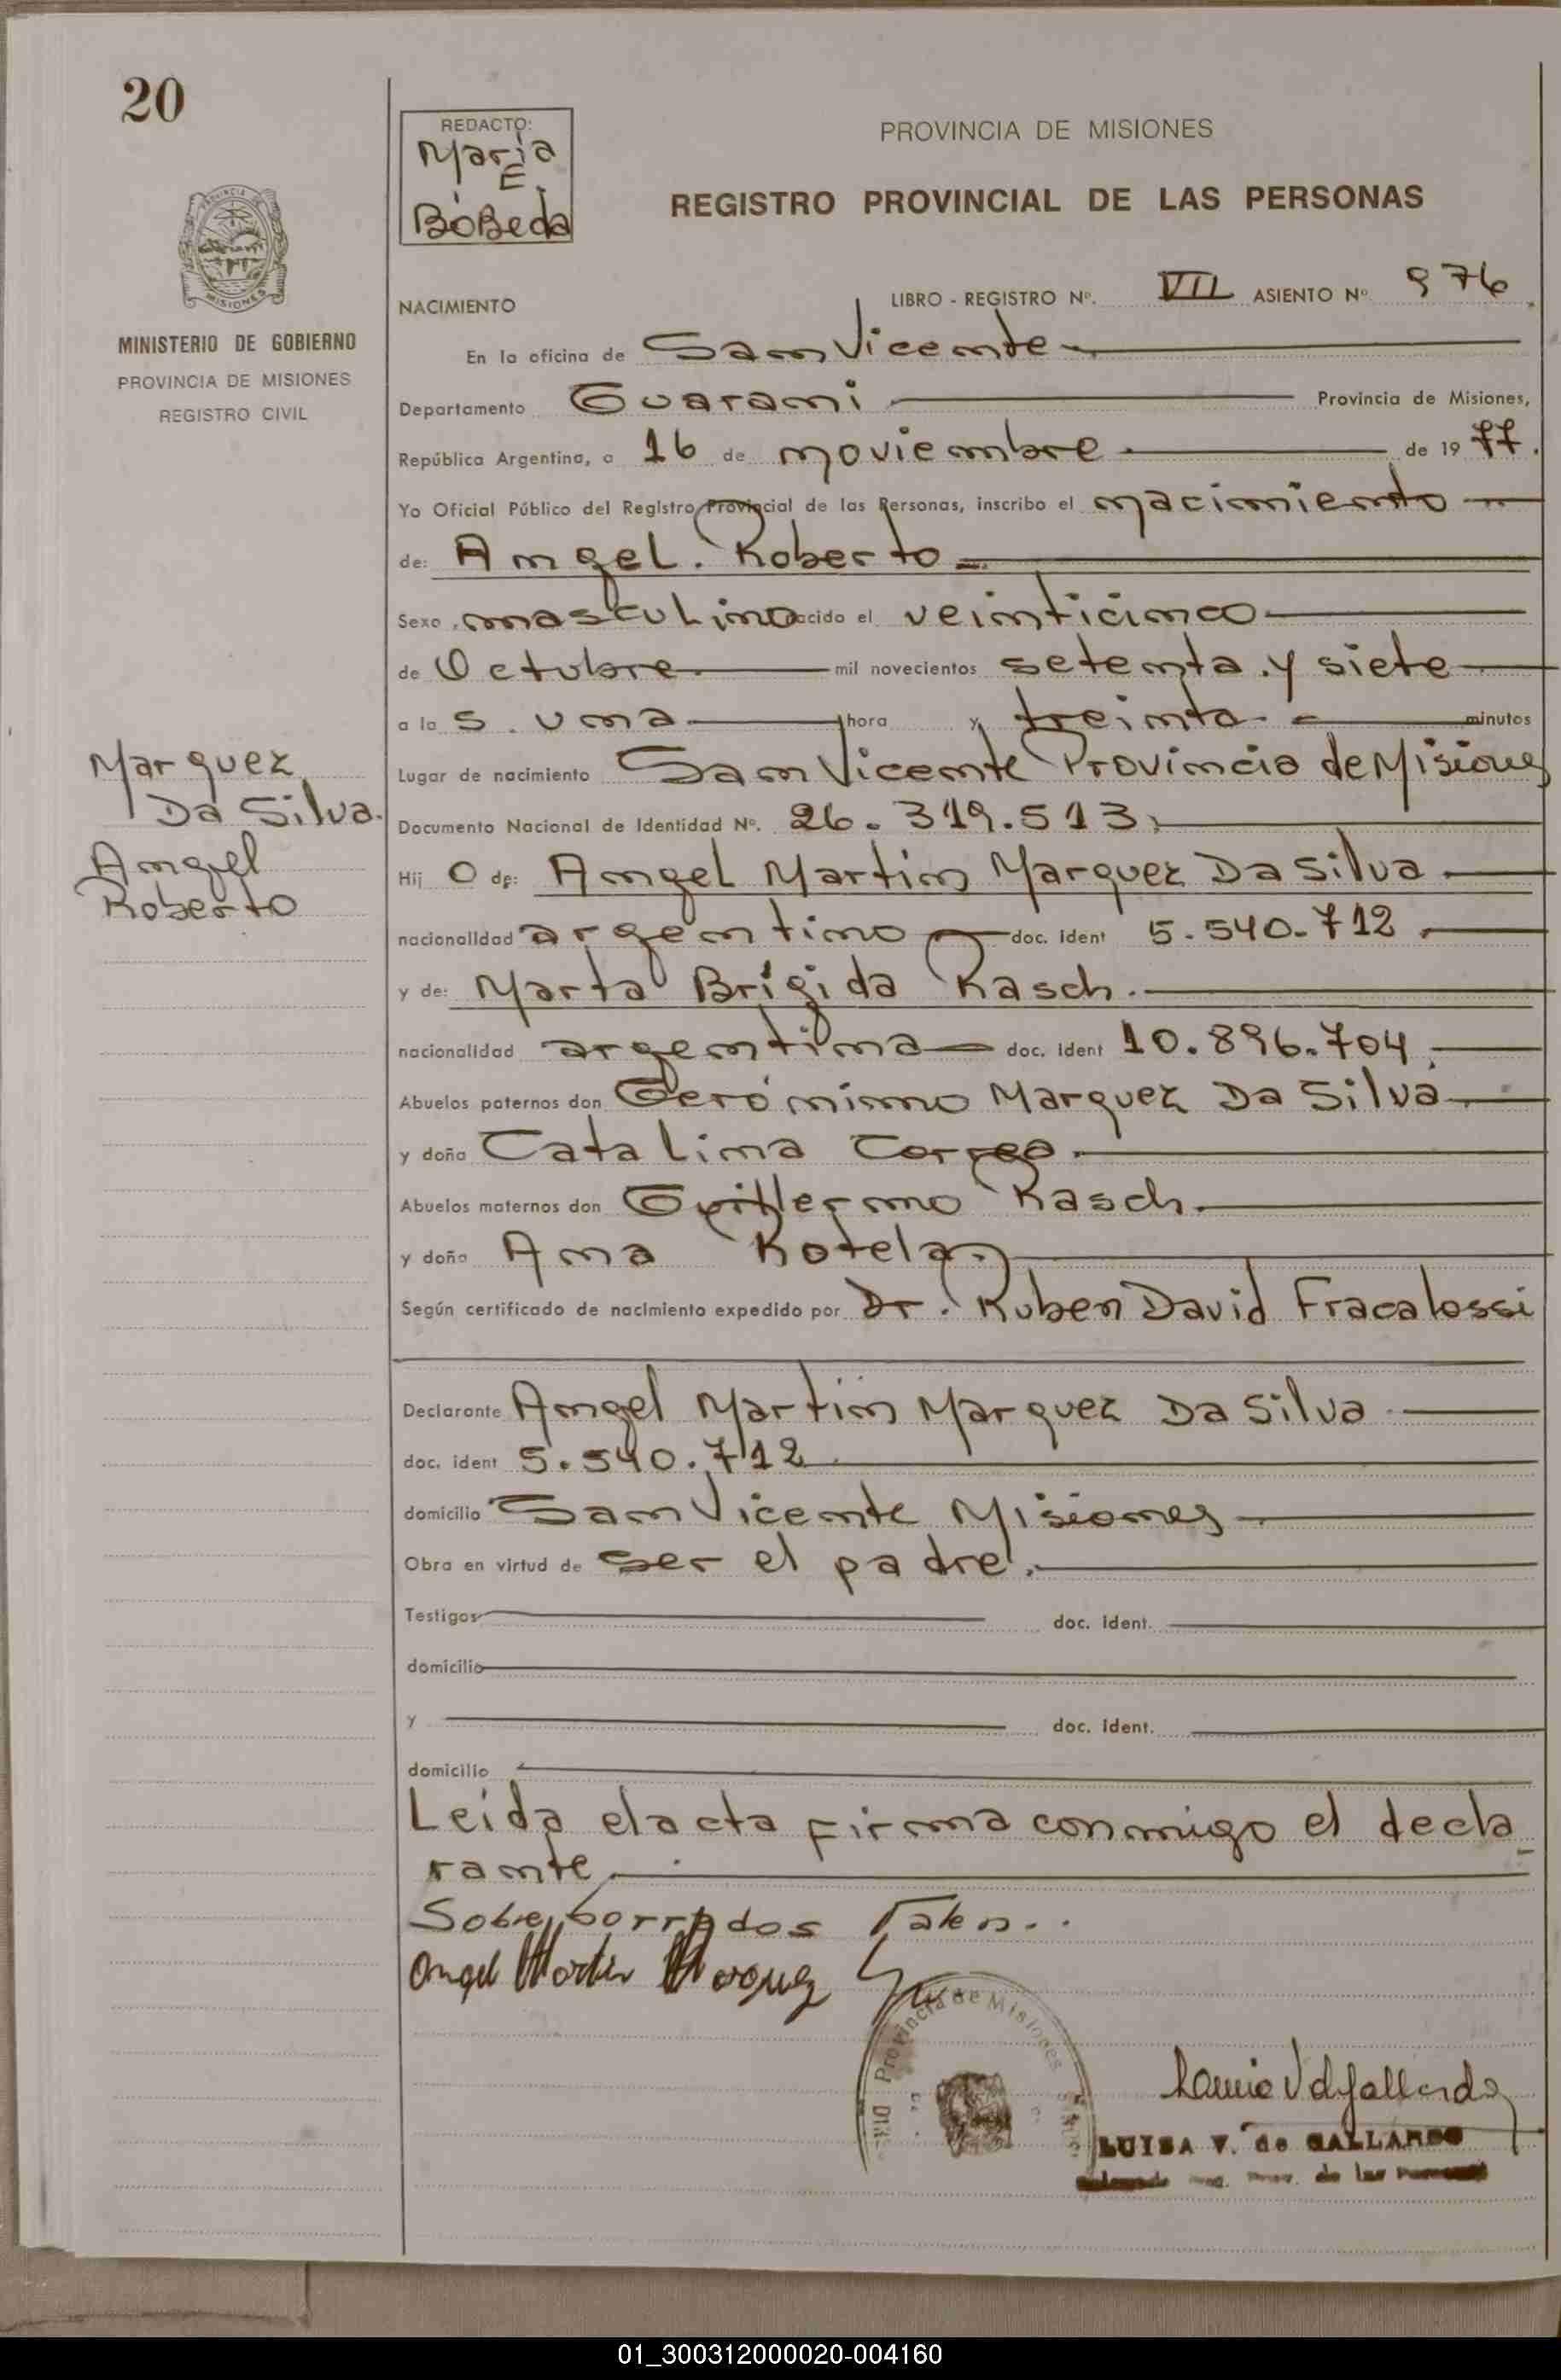 20
REDACTO:
Maria
E.
Bóbeda
PROVINCIA DE MISIONES
REGISTRO PROVINCIAL DE LAS PERSONAS
MISIONES
MINISTERIO DE GOBIERNO
PROVINCIA DE MISIONES
REGISTRO CIVIL
NACIMIENTO
LIBRO - REGISTRO Nº. VII ASIENTO Nº 976
En la oficina de San Vicente
Departamento Guarani Provincia de Misiones,
República Argentina, a 16 de noviembre de 1977.
Yo Oficial Público del Registro Provincial de las Personas, inscribo el nacimiento
de: Angel. Roberto
Sexo masculino nacido el veinticinco
de Octubre mil novecientos setenta y siete
a la s. una hora y treinta minutos
Lugar de nacimiento San Vicente Provincia de Misiones
Documento Nacional de Identidad Nº. 26.319.513.
Hij o de: Angel Martin Marquez Da Silva
nacionalidad argentino doc. ident 5.540.712.
y de: Marta Brígida Rasch.
nacionalidad argentina doc. ident 10.896.704.
Abuelos paternos don Gerónimo Marquez Da Silva
y doña Catalina Correa.
Abuelos maternos don Guillermo Rasch.
y doña Ana Kotela
Según certificado de nacimiento expedido por Dr. Ruben David Fracalossi
Marquez
Da Silva.
Angel
Roberto
Declarante Angel Martin Marquez Da Silva
doc. ident 5.540.712.
domicilio San Vicente Misiones
Obra en virtud de ser el padre.
Testigos doc. ident.
domicilio
y doc. ident.
domicilio
Leida el acta firma conmigo el decla
rante.
Sobre borrados Valen..
Angel Martin Marquez
Provincia de Misiones
LUISA V. de GALLARDO
01_300312000020-004160